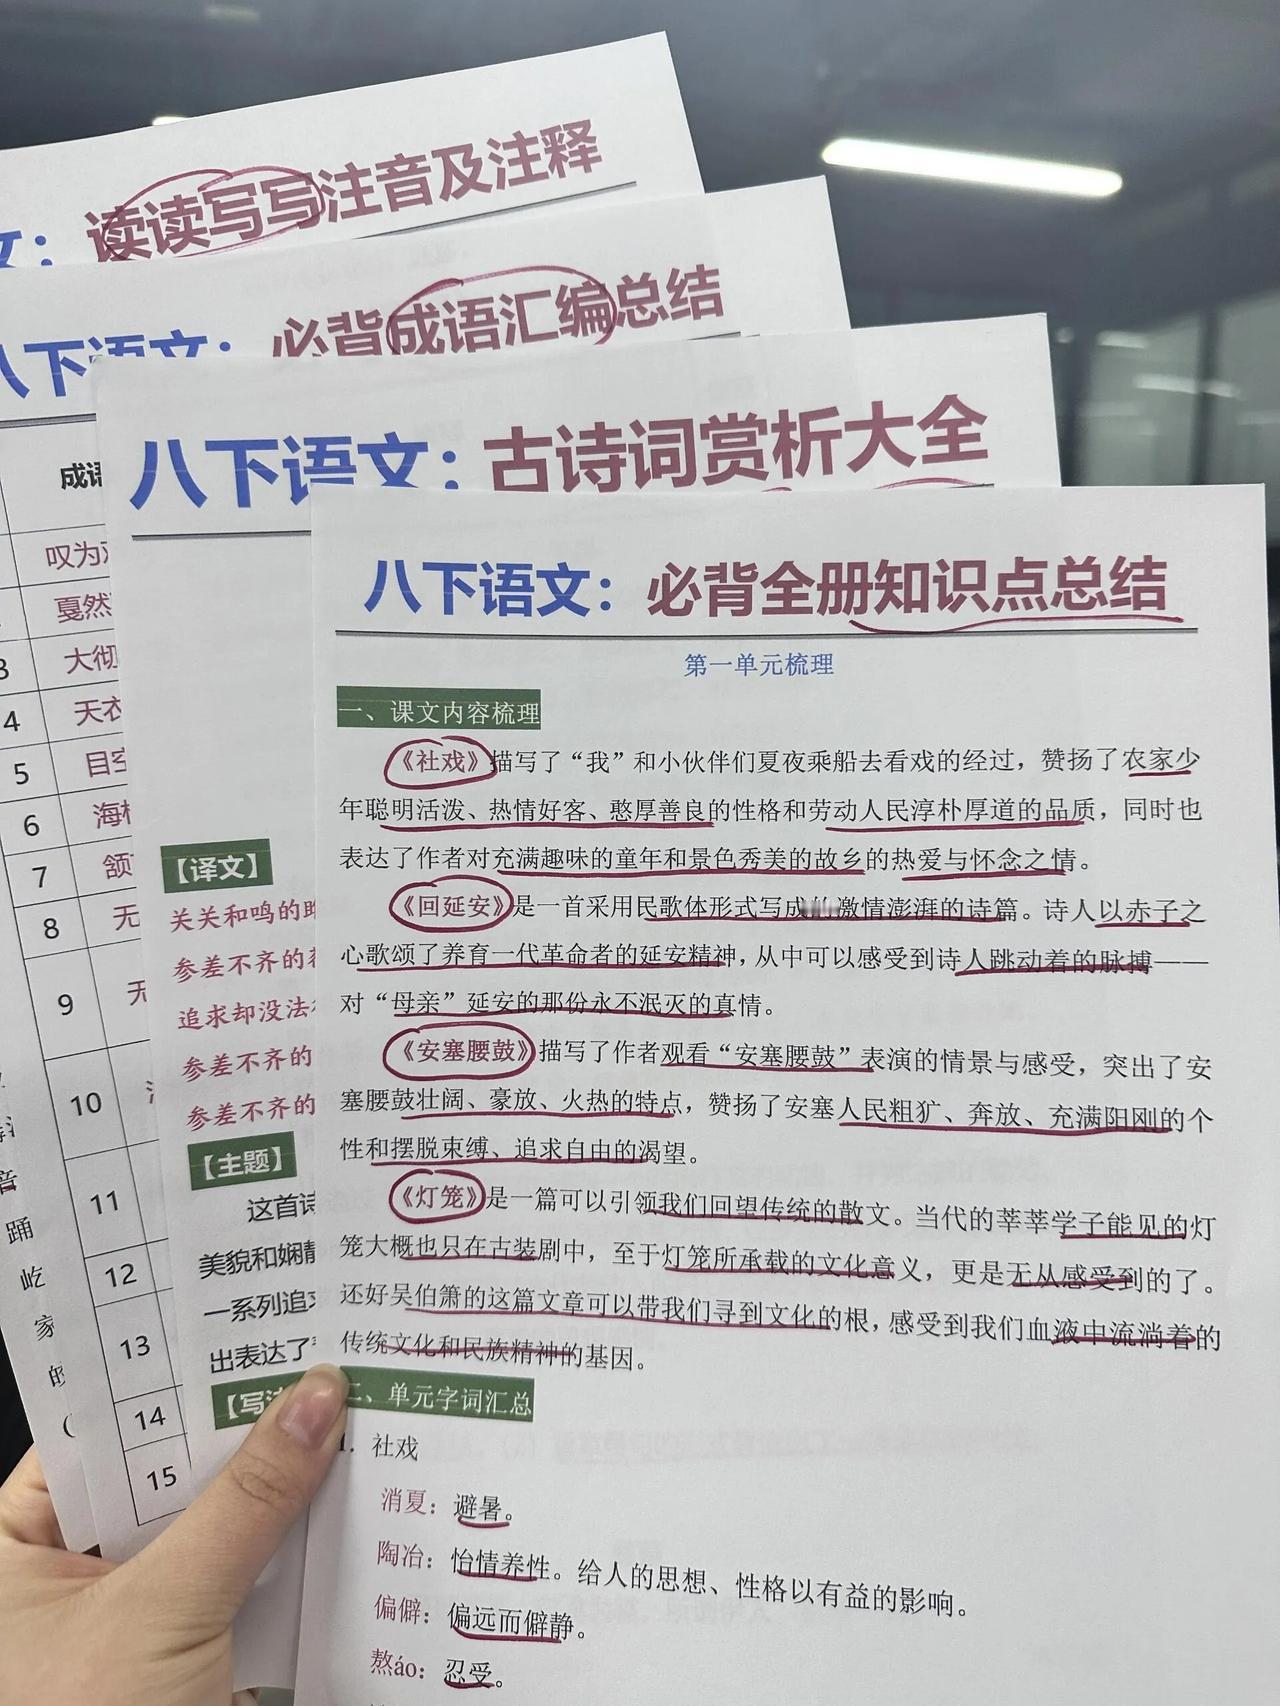 文：读读写写注音及注释
八下语文：必背成语汇编总结
成语
叹为
戛然
3 大彻
4 天衣
5 目空
6 海
7 颔
8 无
9 无
10
11
12
13
14
15
音
踊
屹
家
的
（
八下语文：古诗词赏析大全
【译文】
关关和鸣的
参差不齐的
追求却没法
参差不齐的
参差不齐的
【主题】
这首诗
美貌和娴静
一系列追求
出表达了
【写法
八下语文：必背全册知识点总结
第一单元梳理
一、课文内容梳理
《社戏》描写了“我”和小伙伴们夏夜乘船去看戏的经过，赞扬了农家少
年聪明活泼、热情好客、憨厚善良的性格和劳动人民淳朴厚道的品质，同时也
表达了作者对充满趣味的童年和景色秀美的故乡的热爱与怀念之情。
《回延安》是一首采用民歌体形式写成的激情澎湃的诗篇。诗人以赤子之
心歌颂了养育一代革命者的延安精神，从中可以感受到诗人跳动着的脉搏——
对“母亲”延安的那份永不泯灭的真情。
《安塞腰鼓》描写了作者观看“安塞腰鼓”表演的情景与感受，突出了安
塞腰鼓壮阔、豪放、火热的特点，赞扬了安塞人民粗犷、奔放、充满阳刚的个
性和摆脱束缚、追求自由的渴望。
《灯笼》是一篇可以引领我们回望传统的散文。当代的莘莘学子能见的灯
笼大概也只在古装剧中，至于灯笼所承载的文化意义，更是无从感受到的了。
还好吴伯箫的这篇文章可以带我们寻到文化的根，感受到我们血液中流淌着的
传统文化和民族精神的基因。
二、单元字词汇总
1. 社戏
消夏：避暑。
陶冶：怡情养性。给人的思想、性格以有益的影响。
偏僻：偏远而僻静。
熬áo：忍受。